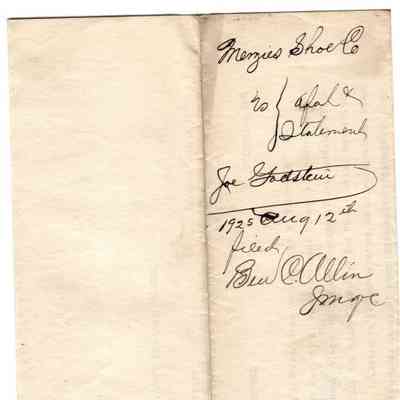 Menzies Shoe Co
vs { afad &
Statement
Joe Godstein
1925 Aug 12th
filed
Ben C. Allin